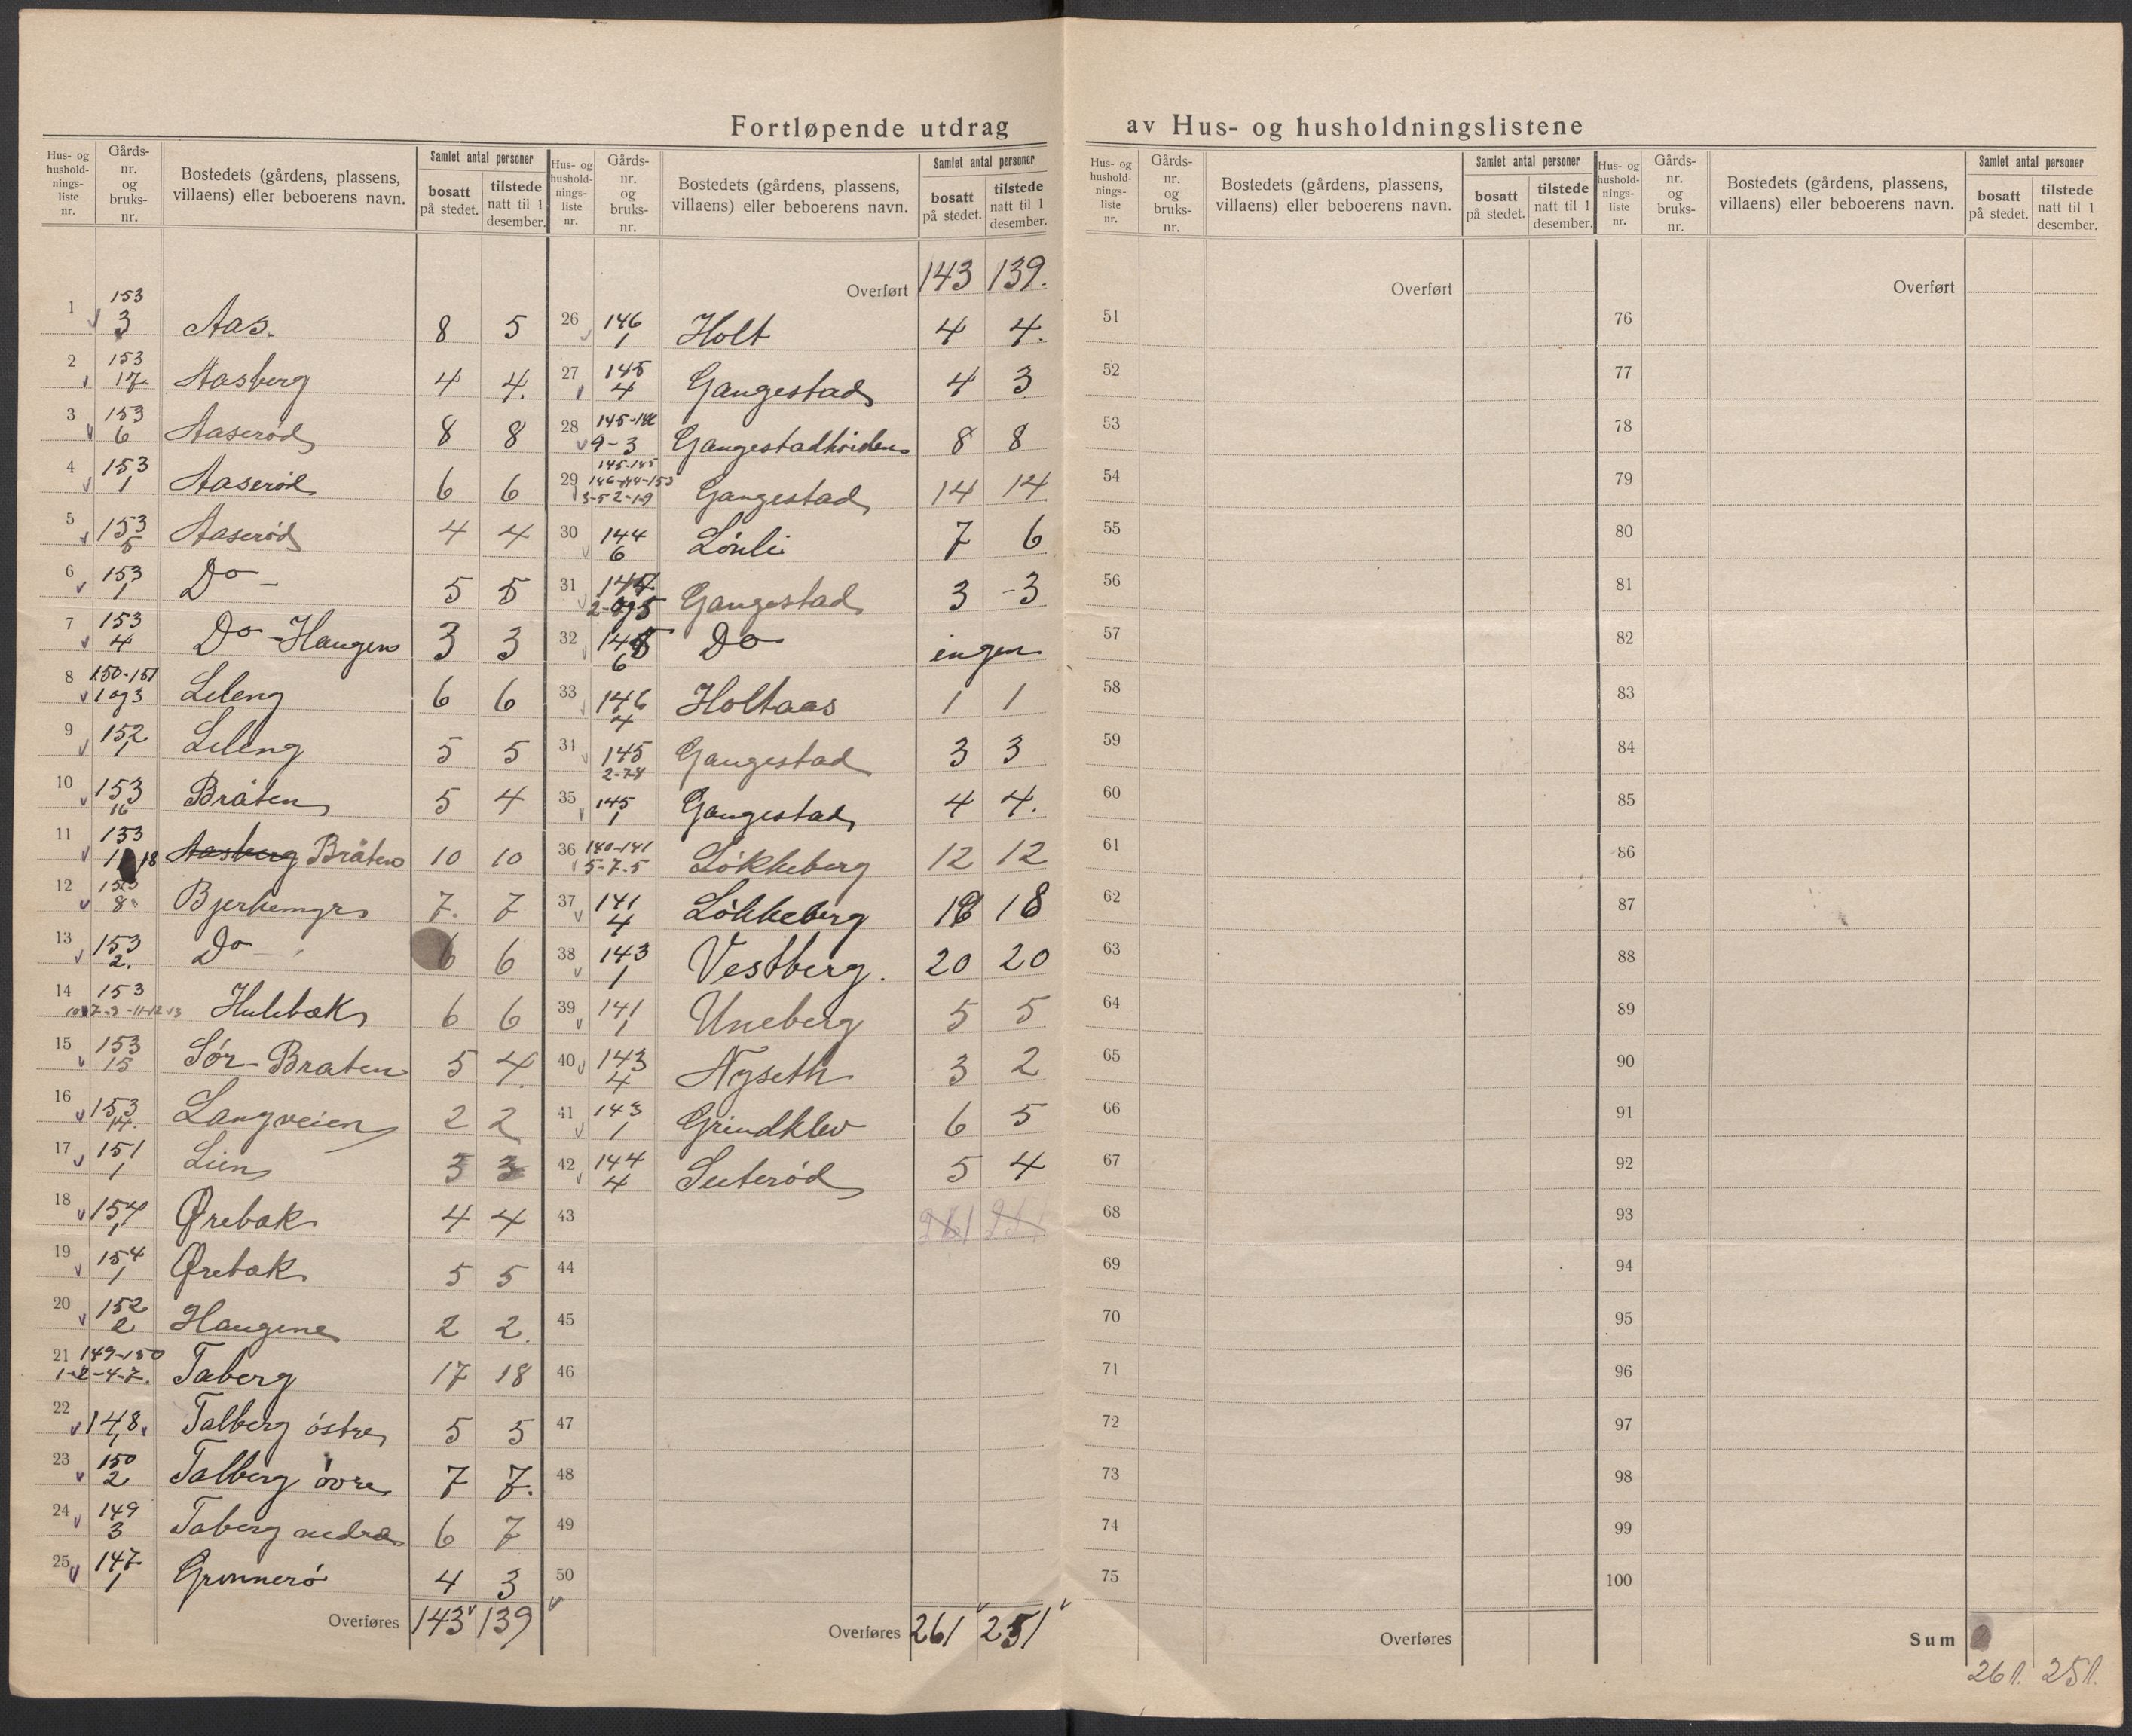 Fortløpende utdrag av Hus- og husholdningslistene
Hus- og hushold-nings-liste nr. Gårds-nr. og bruks-nr. Bostedets (gårdens, plassens, villaens) eller beboerens navn. Samlet antal personer bosatt på stedet. tilstede natt til 1 desember.
1 153 3 Aas. 8 5
2 153 17. Aasberg 4 4.
3 153 6 Aaserød 8 8
4 153 1 Aaserød 6 6
5 153 5 Aaserød 4 4
6 153 1 Do - 5 5
7 153 4 Do - Haugen 3 3
8 150-151 1 og 3 Leleng 6 6
9 152 1 Leleng 5 5
10 153 16 Bråten 5 4
11 153 18 Aasberg Bråten 10 10
12 153 8 Bjerkemyr 7. 7
13 153 2. Do - 6 6
14 153 Hulebæk 6 6
15 153 15 Sør-Braten 5 4.
16 153 14. Langveien 2 2
17 151 1 Lien 3 3
18 154 1 Ørebæk 4 4
19 154 1 Ørebæk 5 5
20 152 2 Haugene 2 2.
21 149-150 1-2-4-7. Taberg 17 18
22 148. 1 Talberg östre 5 5
23 150 2 Talberg övre 7 7.
24 149 3 Taberg nedre 6 7
25 147 1 Grønnerö 4 3
Overføres 143 139
Hus- og hushold-nings-liste nr. Gårds-nr. og bruks-nr. Bostedets (gårdens, plassens, villaens) eller beboerens navn. Samlet antal personer bosatt på stedet. tilstede natt til 1 desember.
Overført 143 139.
26 146 1 Holt 4 4.
27 145 4 Gangestad 4 3
28 145-146 9-3 Gangestadhøiden 8 8
29 145-145 146-144-153 3-5 2-1-9 Gangestad 14 14
30 144 6 Lönli 7 6
31 2-og 5 Gangestad 3 -3
32 145 6 Do ingen
33 146 4 Holtaas 1 1
34 145 2-7-8 Gangestad 3 3
35 145 1 Gangestad 4 4.
36 140-141 5-7-5 Lökkeberg 12 12
37 141 4 Lökkeberg 18 18
38 143 1 Vestberg. 20 20
39 141 1 Uneberg 5 5
40 143 4 Nyseth 3 2
41 143 1 Grindklev 6 5
42 144 4 Seterød 5 4
43 261 251
44
45
46
47
48
49
50
Overføres 261 251
Hus- og hushold-nings-liste nr. Gårds-nr. og bruks-nr. Bostedets (gårdens, plassens, villaens) eller beboerens navn. Samlet antal personer bosatt på stedet. tilstede natt til 1 desember.
Overført
51
52
53
54
55
56
57
58
59
60
61
62
63
64
65
66
67
68
69
70
71
72
73
74
75
Overføres
Hus- og hushold-nings-liste nr. Gårds-nr. og bruks-nr. Bostedets (gårdens, plassens, villaens) eller beboerens navn. Samlet antal personer bosatt på stedet. tilstede natt til 1 desember.
Overført
76
77
78
79
80
81
82
83
84
85
86
87
88
89
90
91
92
93
94
95
96
97
98
99
100
Sum
261. 251.